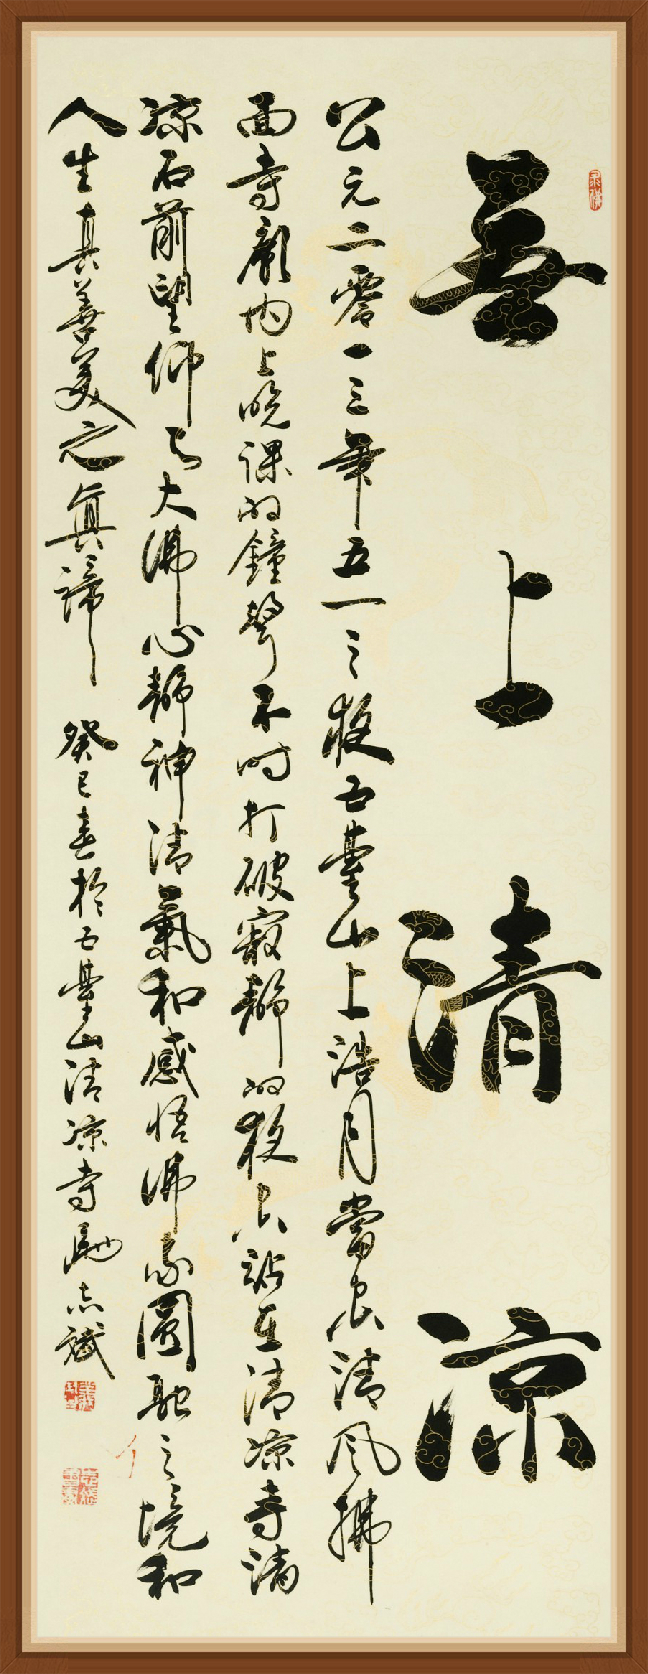 無上清凉
公元二零一三年五一之夜五臺山上浩月當空清風拂
面寺廟内上晚課的鐘聲不時打破寂靜的夜空站在清凉寺清
凉石前望仰了大佛心靜神清氣和感悟佛家圓融之境和
人生真善美之真諦 癸巳春於五臺山清凉寺 志斌